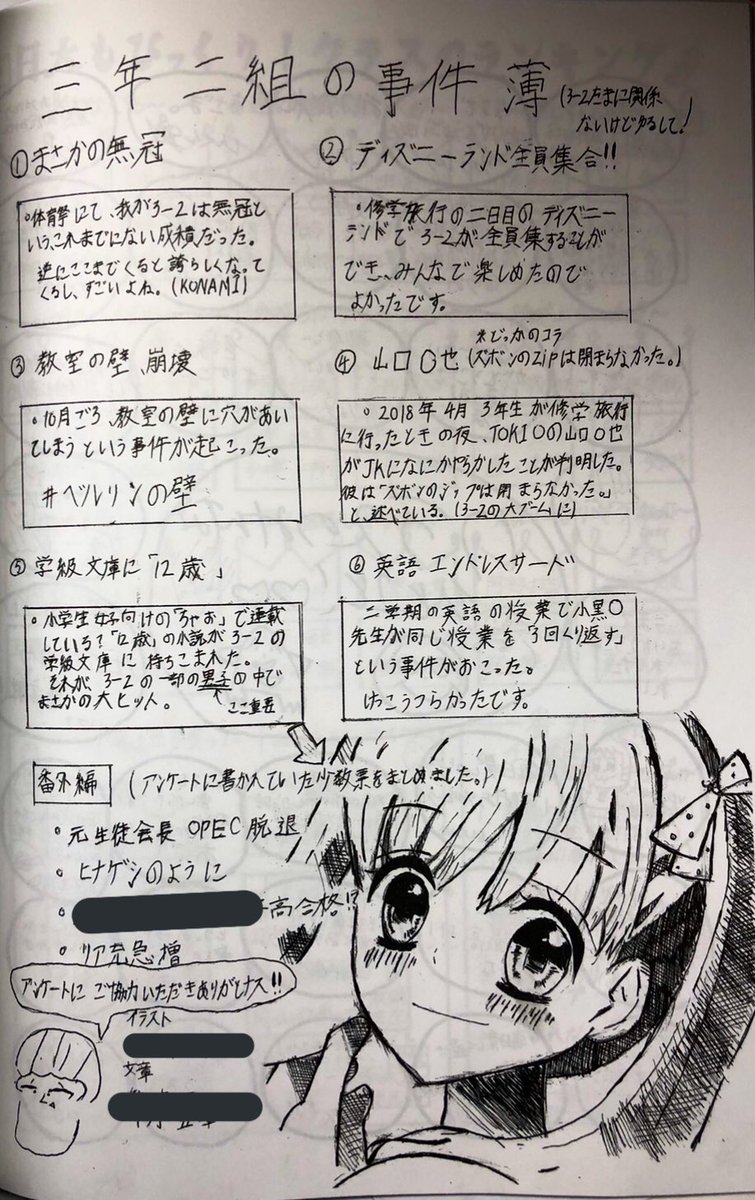 三年二組の事件薄
(3-2たまに関係
ないけどゆるして!
①まさかの無冠
•体育祭にて、我が3-2は無冠と
いう、これまでにない成積だった。
逆にここまでくると誇らしくなって
くるし、すごいよね。(KONAMI)
② ディズニーランド全員集合!!
•修学旅行の二日目のディズニー
ランドで3-2が全員集することが
でき、みんなで楽しめたので
よかったです。
③ 教室の壁、崩壊
•10月ごろ、教室の壁に穴があい
てしまうという事件が起こった。
#ベルリンの壁
※どっかのコラ
④ 山口〇也(ズボンのZipは閉まらなかった。)
•2018年4月3年生が修学旅行
に行ったときの夜、TOKIOの山口〇也
がJKになにかやらかしたことが判明した。
彼は「ズボンのジップは閉まらなかった。」
と、述べている。(3-2の大ブームに)
⑤ 学級文庫に「12歳」
•小学生女子向けの「ちゃお」で連載
している?「12歳」の小説が3-2の
学級文庫に持ちこまれた。
それが、3-2の一部の男子の中で
まさかの大ヒット。
↑ここ重要
⑥ 英語 エンドレスサード
二学期の英語の授業で小黒〇
先生が同じ授業を「3回くり返す」
という事件がおこった。
けっこうつらかったです。
番外編 (アンケートに書かれていた少数票をまとめました。)
•元生徒会長 OPEC脱退
•ヒナゲシのように
•高合格!?
•リア充急増
アンケートにご協力いただきありがとナス!!
イラスト
文章